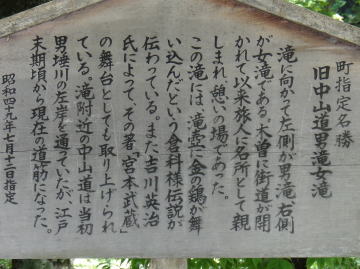 町指定名勝
旧中山道男滝女滝
滝に向かって左側が男滝、右側
が女滝である。木曽に街道が開
かれて以来旅人に名所として親
しまれ、憩いの場であった。
この滝には、滝壺に金の鶏が舞
い込んだという倉科様伝説が
伝わっている。また吉川英治
氏によって、その著「宮本武蔵」
の舞台としても取り上げられ
ている。滝附近の中山道は当初
男埵川の左岸を通っていたが、江戸
末期頃から現在の道筋になった。
昭和四十九年七月十二日指定